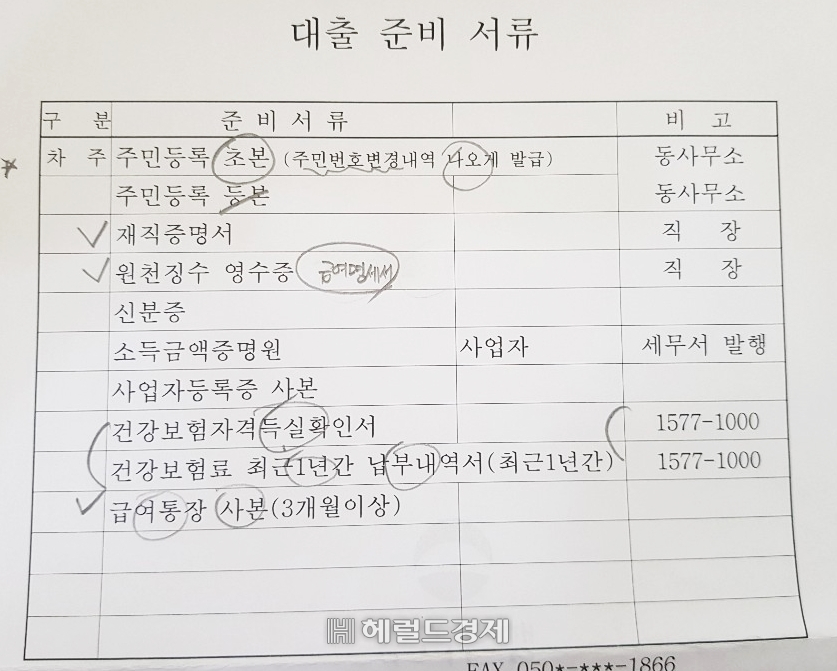 대출 준비 서류
구 분 준 비 서 류 비 고
차 주 주민등록 초본 (주민번호변경내역 나오게 발급) 동사무소
주민등록 등본 동사무소
재직증명서 직 장
원천징수 영수증 급여명세서 직 장
신분증
소득금액증명원 사업자 세무서 발행
사업자등록증 사본
건강보험자격득실확인서 1577-1000
건강보험료 최근1년간 납부내역서(최근1년간) 1577-1000
급여통장 사본(3개월이상)
헤럴드경제
FAX 050*-***-1866